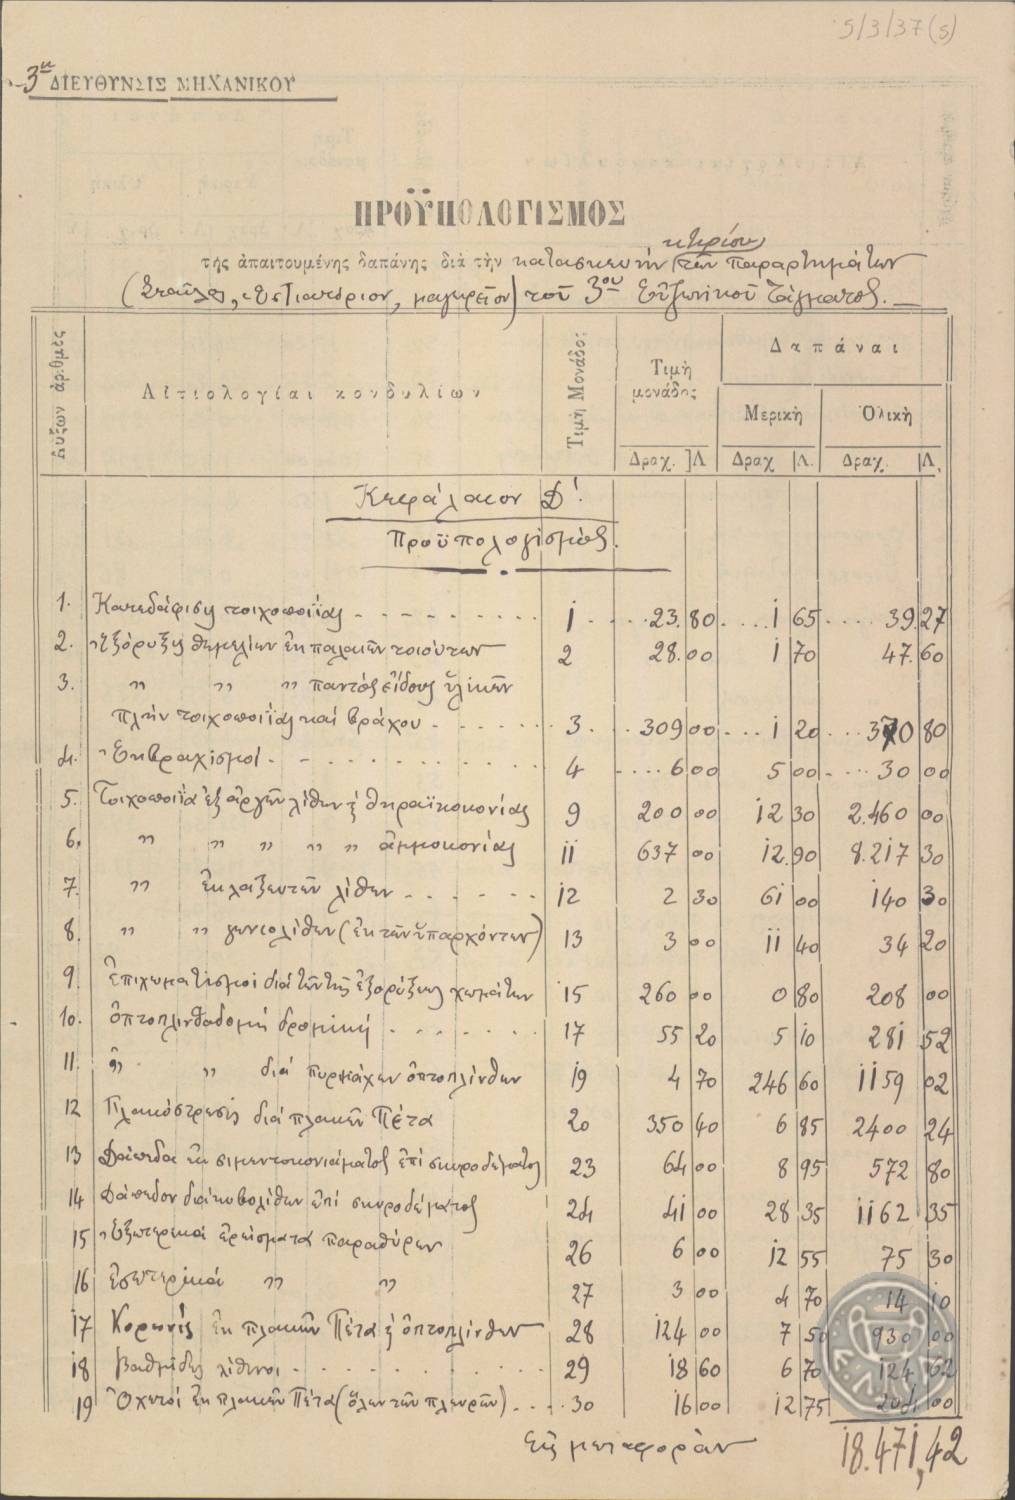 5/3/37(s)
3η ΔΙΕΥΘΥΝΣΙΣ ΜΗΧΑΝΙΚΟΥ
ΠΡΟΫΠΟΛΟΓΙΣΜΟΣ
κτιρίου
τῆς ἀπαιτουμένης δαπάνης διὰ τὴν κατασκευὴν τῶν παραρτημάτων
(Σταῦλος, ἑστιατόριον, μαγειρεῖον) τοῦ 3ου Εὐζωνικοῦ Τάγματος.
Αὔξων ἀριθμὸς Αἰτιολογίαι κονδυλίων Τιμὴ Μονάδος Τιμὴ μονάδος Δαπάναι
Μερικὴ Ὁλικὴ
Δραχ. Λ Δραχ Λ. Δραχ. Λ.
Κεφάλαιον Δ'.
Προϋπολογισμός.
1. Κατεδάφισις τοιχοποιΐας 1 23.80 1 65 39.27
2. Ἐξόρυξις θεμελίων ἐκ παλαιῶν τοιούτων 2 28.00 1 70 47.60
3. " " " παντὸς εἴδους ὑλικῶν
πλὴν τοιχοποιΐας καὶ βράχου 3. 309 00 1 20 370 80
4. Ἐκβραχισμοί 4 6 00 5 00 30 00
5. Τοιχοποιΐα ἐξ ἀργῶν λίθων ἐ θηραϊκοκονίας 9 200 00 12 30 2.460 00
6. " " " " " ἀμμοκονίας 11 637 00 12.90 8.217 30
7. " ἐκ λαξευτῶν λίθων 12 2 30 61 00 140 30
8. " " γωνιολίθων (ἐκ τῶν ὑπαρχόντων) 13 3 00 11 40 34 20
9. Ἐπιχωματισμοί διὰ τῶν τῆς ἐξορύξεως χωμάτων 15 260 00 0 80 208 00
10. Ὀπτοπλινθοδομή δρομική 17 55 20 5 10 281 52
11. " " διά πυριμάχων ὀπτοπλίνθων 19 4 70 246 60 1159 02
12 Πλακόστρωσις διά πλακῶν Πέτα 20 350 40 6 85 2400 24
13 Δάπεδα ἐκ σιμεντοκονιάματος ἐπί σκυροδέματος 23 64 00 8 95 572 80
14 Δάπεδον διά κυβολίθων ἐπί σκυροδέματος 24 41 00 28 35 1162 35
15 Ἐξωτερικαί ἐρείσματα παραθύρων 26 6 00 12 55 75 30
16 Ἐσωτερικά " " 27 3 00 4 70 14 10
17 Κορωνίς ἐκ πλακῶν Πέτα ἐ ὀπτοπλίνθων 28 124 00 7 50 930 00
18 Βαθμίδες λίθιναι 29 18 60 6 70 124 62
19 Ὀχετοί ἐκ πλακῶν Πέτα (ὅλων τῶν πλευρῶν) 30 16 00 12 75 204 00
Εἰς μεταφοράν 18.471,42